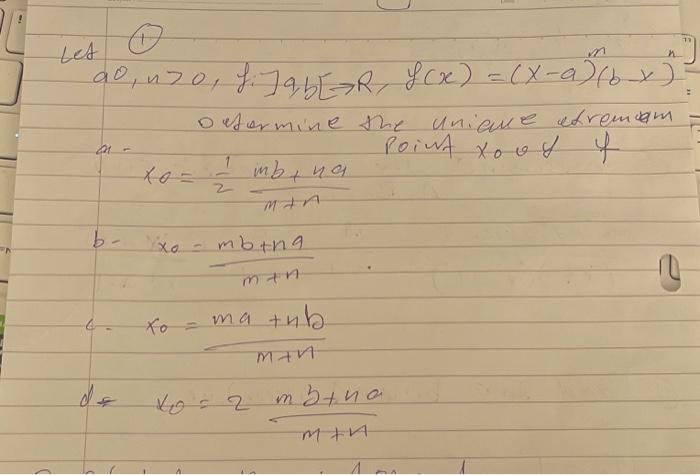 1
Let
a0, n>0, f:]a,b[→R, f(x) = (x-a)^m (b-x)^n
Determine the unique extremum
point x0 of f
a- x0 = 1/2 (mb+na)/(m+n)
b- x0 = (mb+na)/(m+n)
c- x0 = (ma+nb)/(m+n)
d- x0 = 2 (mb+na)/(m+n)